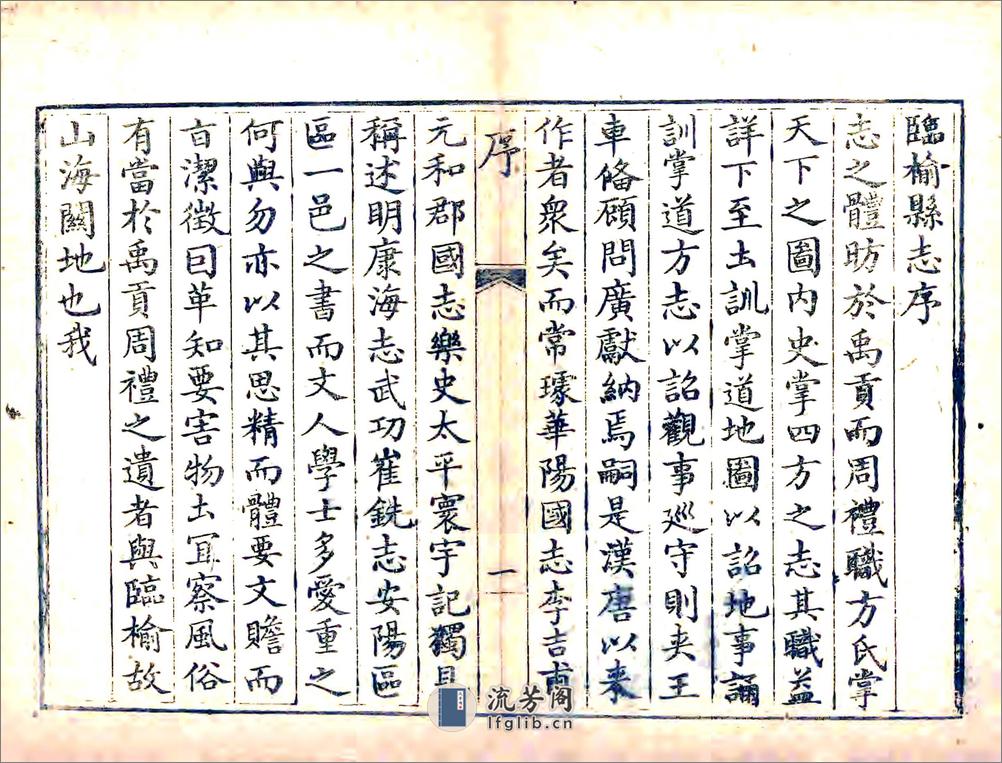 臨榆縣志序
志之體昉於禹貢而周禮職方氏掌
天下之圖內史掌四方之志其職益
詳下至土訓掌道地圖以詔地事誦
訓掌道方志以詔觀事廵守則夾王
車俻顧問廣獻納焉嗣是漢唐以来
作者衆矣而常璩華陽國志李吉甫
序
一
元和郡國志樂史太平寰宇記獨見
稱述明康海志武功崔銑志安陽區
區一邑之書而文人學士多愛重之
何與勿亦以其思精而體要文贍而
㫖潔徵因革知要害物土冝察風俗
有當於禹貢周禮之遺者與臨榆故
山海關地也我
流芳阁
lfglib.cn